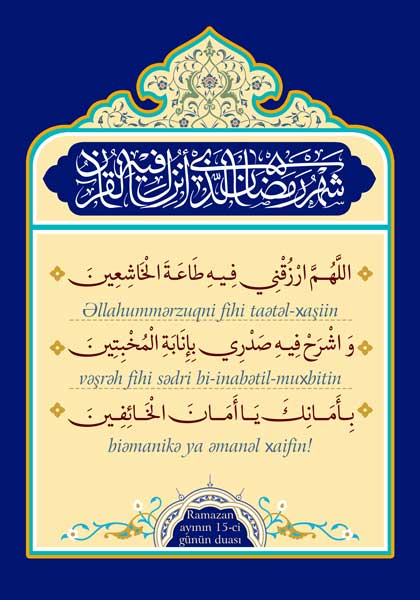 شهر رمضان الذي أنزل فيه القرآن
اللَّهُمَّ ارْزُقْنِي فِيهِ طَاعَةَ الْخَاشِعِينَ
Əllahummərzuqni fihi taətəl-xaşiin
وَ اشْرَحْ فِيهِ صَدْرِي بِإِنَابَةِ الْمُخْبِتِينَ
vəşrəh fihi sədri bi-inabətil-muxbitin
بِأَمَانِكَ يَا أَمَانَ الْخَائِفِينَ
biəmanikə ya əmanəl xaifin!
Ramazan
ayının 15-ci
günün duası